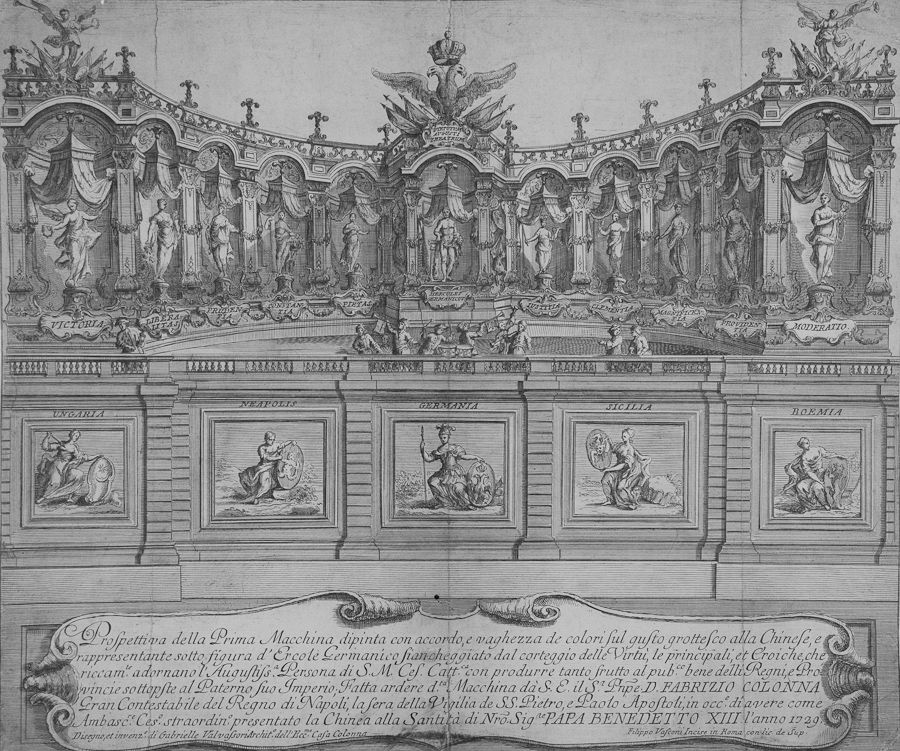 VIRTUTIS
AUGUSTI
TEATRUM
HERCULES
GERMANICUS
VICTORIA
LIBERA
LITAS
PIETAS
CLEMENTIA
MAGNIFICEN
TIA
PROVIDEN
TIA
MODERATIO
UNGARIA
NEAPOLIS
GERMANIA
SICILIA
BOEMIA
Prospettiva della Prima Macchina dipinta con accordo, e vaghezza de colori sul gusto grottesco alla Chinese, e
rappresentante sotto figura d'Ercole Germanico fiancheggiato dal corteggio delle Virtù, le principali, et Eroiche, che
riccamte. adornano l'Augustisσ.a Persona di S. M. Ces. Catt.ca con produrre tanto frutto al pub.co bene delli Regni, e Pro
vincie sottopste al Paterno suo Imperio, Fatta ardere d.ta Macchina dà S. E. il S.r Pnpe D. FABRIZIO COLONNA
Gran Contestabile del Regno di Napoli, la sera della Vigilia de SS. Pietro, e Paolo Apostoli, in occ.e di avere come
Ambasc.e Ces.o straordin.o presentato la Chinea alla Santità di Nrõ Sig.re PAPA BENEDETTO XIII l'anno 1729
Disegno, et invenz.e di Gabrielle Valvassori Archit.o dell'Ecc.ma Casa Colonna
Filippo Vasconi Incise in Roma con lic. de Sup.